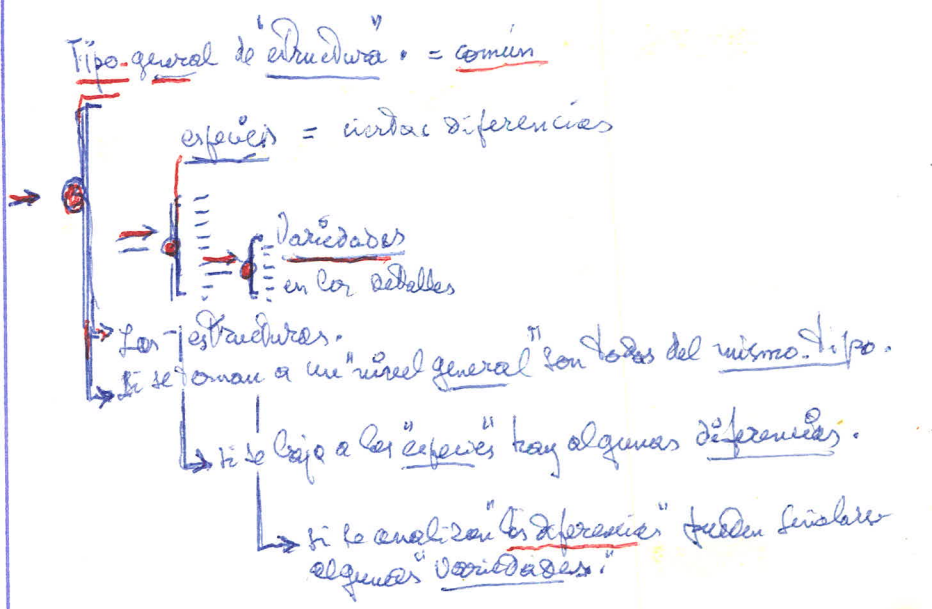 Tipo-general de "estructura". = común
especies = ciertas diferencias
Variedades
en los detalles
Las estructuras.
Si se toman a un "nivel general" son todas del mismo tipo.
si se baja a las "especies" hay algunas diferencias.
si se analizan "las diferencias" pueden señalarse
algunas "variedades."